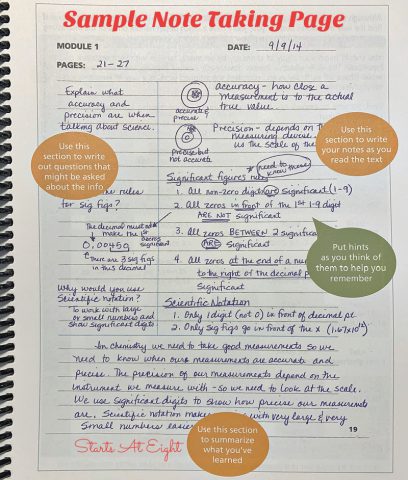 Sample Note Taking Page
MODULE 1
DATE: 9/9/14
PAGES: 21-27
Explain what
accuracy and
precision are when
talking about Science.
accuracy - how close a
measurement is to the actual
true value.
accurate &
precise
Precision - depends on
measuring devise.
us the scale of the
precise but
not accurate
Use this
section to write
out questions that
might be asked
about the info.
Use this
section to write
your notes as you
read the text
Significant figures
need to
know these
the rules
for sig figs?
1. All non-zero digits are significant (1-9)
2. All zeros in front of the 1st 1-9 digit
ARE NOT significant
The decimal must
make the 1st
zeros
significant
0.00459
There are 3 sig figs
in this decimal
3. All zeros BETWEEN 2 significant
ARE significant
4. All zeros at the end of a
to the right of the decimal
Significant
Put hints
as you think of
them to help you
remember
Why would you use
Scientific notation?
To work with large
or small numbers and
show significant digits
Scientific Notation
1. Only 1 digit (not 0) in front of decimal pt
2. Only sig figs go in front of the x (1.67x10¹²)
In chemistry we need to take good measurements so we
need to know when our measurements are accurate and
precise. The precision of our measurements depend on the
instrument we measure with - so we need to look at the scale.
We use significant digits to show how precise our measurements
are. Scientific notation makes with very large & very
Small numbers easier
Use this section
to summarize
what you've
learned
Starts At Eight
19